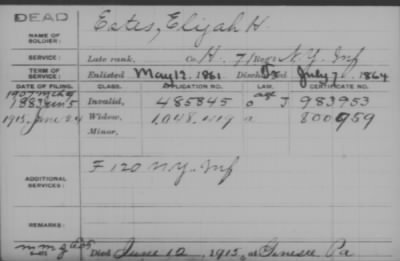 DEAD
NAME OF SOLDIER: Estes, Elijah H.
SERVICE: Late rank, Co. H. 71 Reg't N.Y. Inf
TERM OF SERVICE: Enlisted May 12. 1861. Disch July 7. 1864
DATE OF FILING. CLASS. APPLICATION NO. LAW. CERTIFICATE NO.
1907
1883 Jan 5 Invalid, 485845 age J 983953
1915, June 24 Widow, 1,048,419 a 800959
Minor,
ADDITIONAL SERVICES: F 120 N.Y. Inf
REMARKS:
6-472 Died June 12, 1915, at Genesee Pa